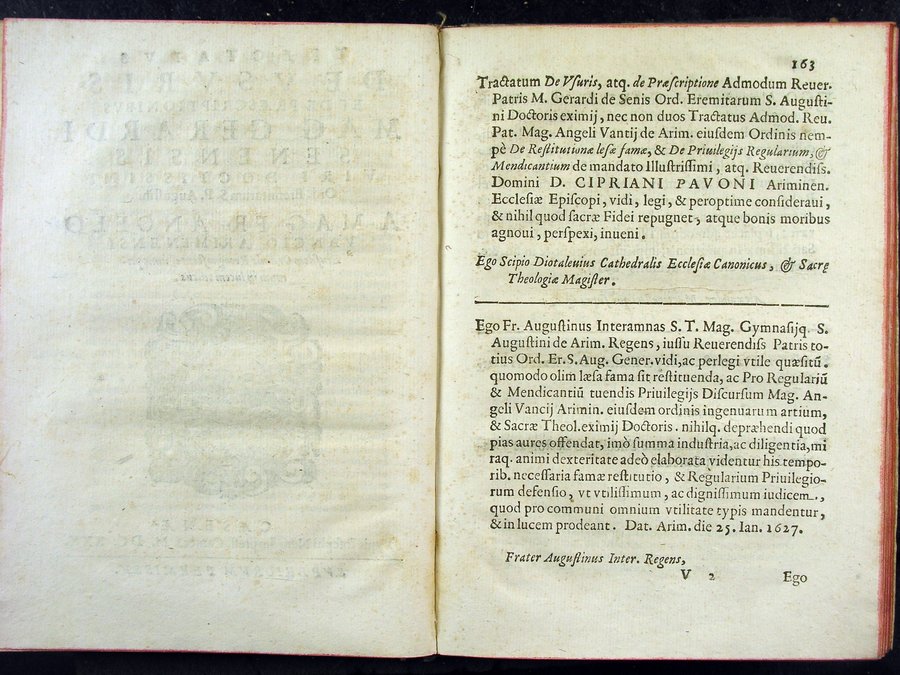 163
Tractatum De Vſuris, atq. de Præſcriptione Admodum Reuer.
Patris M. Gerardi de Senis Ord. Eremitarum S. Auguſti-
ni Doctoris eximij, nec non duos Tractatus Admod. Reu.
Pat. Mag. Angeli Vantij de Arim. eiuſdem Ordinis nem-
pè De Reſtitutionæ leſæ famæ, & De Priuilegijs Regularium, &
Mendicantium de mandato Illuſtriſſimi, atq. Reuerendiſs.
Domini D. CIPRIANI PAVONI Ariminēn.
Eccleſiæ Epiſcopi, vidi, legi, & peroptime conſideraui,
& nihil quod ſacræ Fidei repugnet, atque bonis moribus
agnoui, perſpexi, inueni.
Ego Scipio Diotaleuius Cathedralis Eccleſiæ Canonicus, & Sacrę
Theologiæ Magiſter.
Ego Fr. Auguſtinus Interamnas S. T. Mag. Gymnaſijq. S.
Auguſtini de Arim. Regens, iuſſu Reuerendiſs Patris to-
tius Ord. Er. S. Aug. Gener. vidi, ac perlegi vtile quæſitū.
quomodo olim læſa fama ſit reſtituenda, ac Pro Regulariū
& Mendicantiū tuendis Priuilegijs Diſcurſum Mag. An-
geli Vancij Arimin. eiuſdem ordinis ingenuarum artium,
& Sacræ Theol. eximij Doctoris. nihilq. depræhendi quod
pias aures offendat, imò ſumma induſtria, ac diligentia, mi
raq. animi dexteritate adeò elaborata videntur his tempo-
rib. neceſſaria famæ reſtitutio, & Regularium Priuilegio-
rum defenſio, vt vtiliſſimum, ac digniſſimum iudicem.,
quod pro communi omnium vtilitate typis mandentur,
& in lucem prodeant. Dat. Arim. die 25. Ian. 1627.
Frater Auguſtinus Inter. Regens,
V 2 Ego